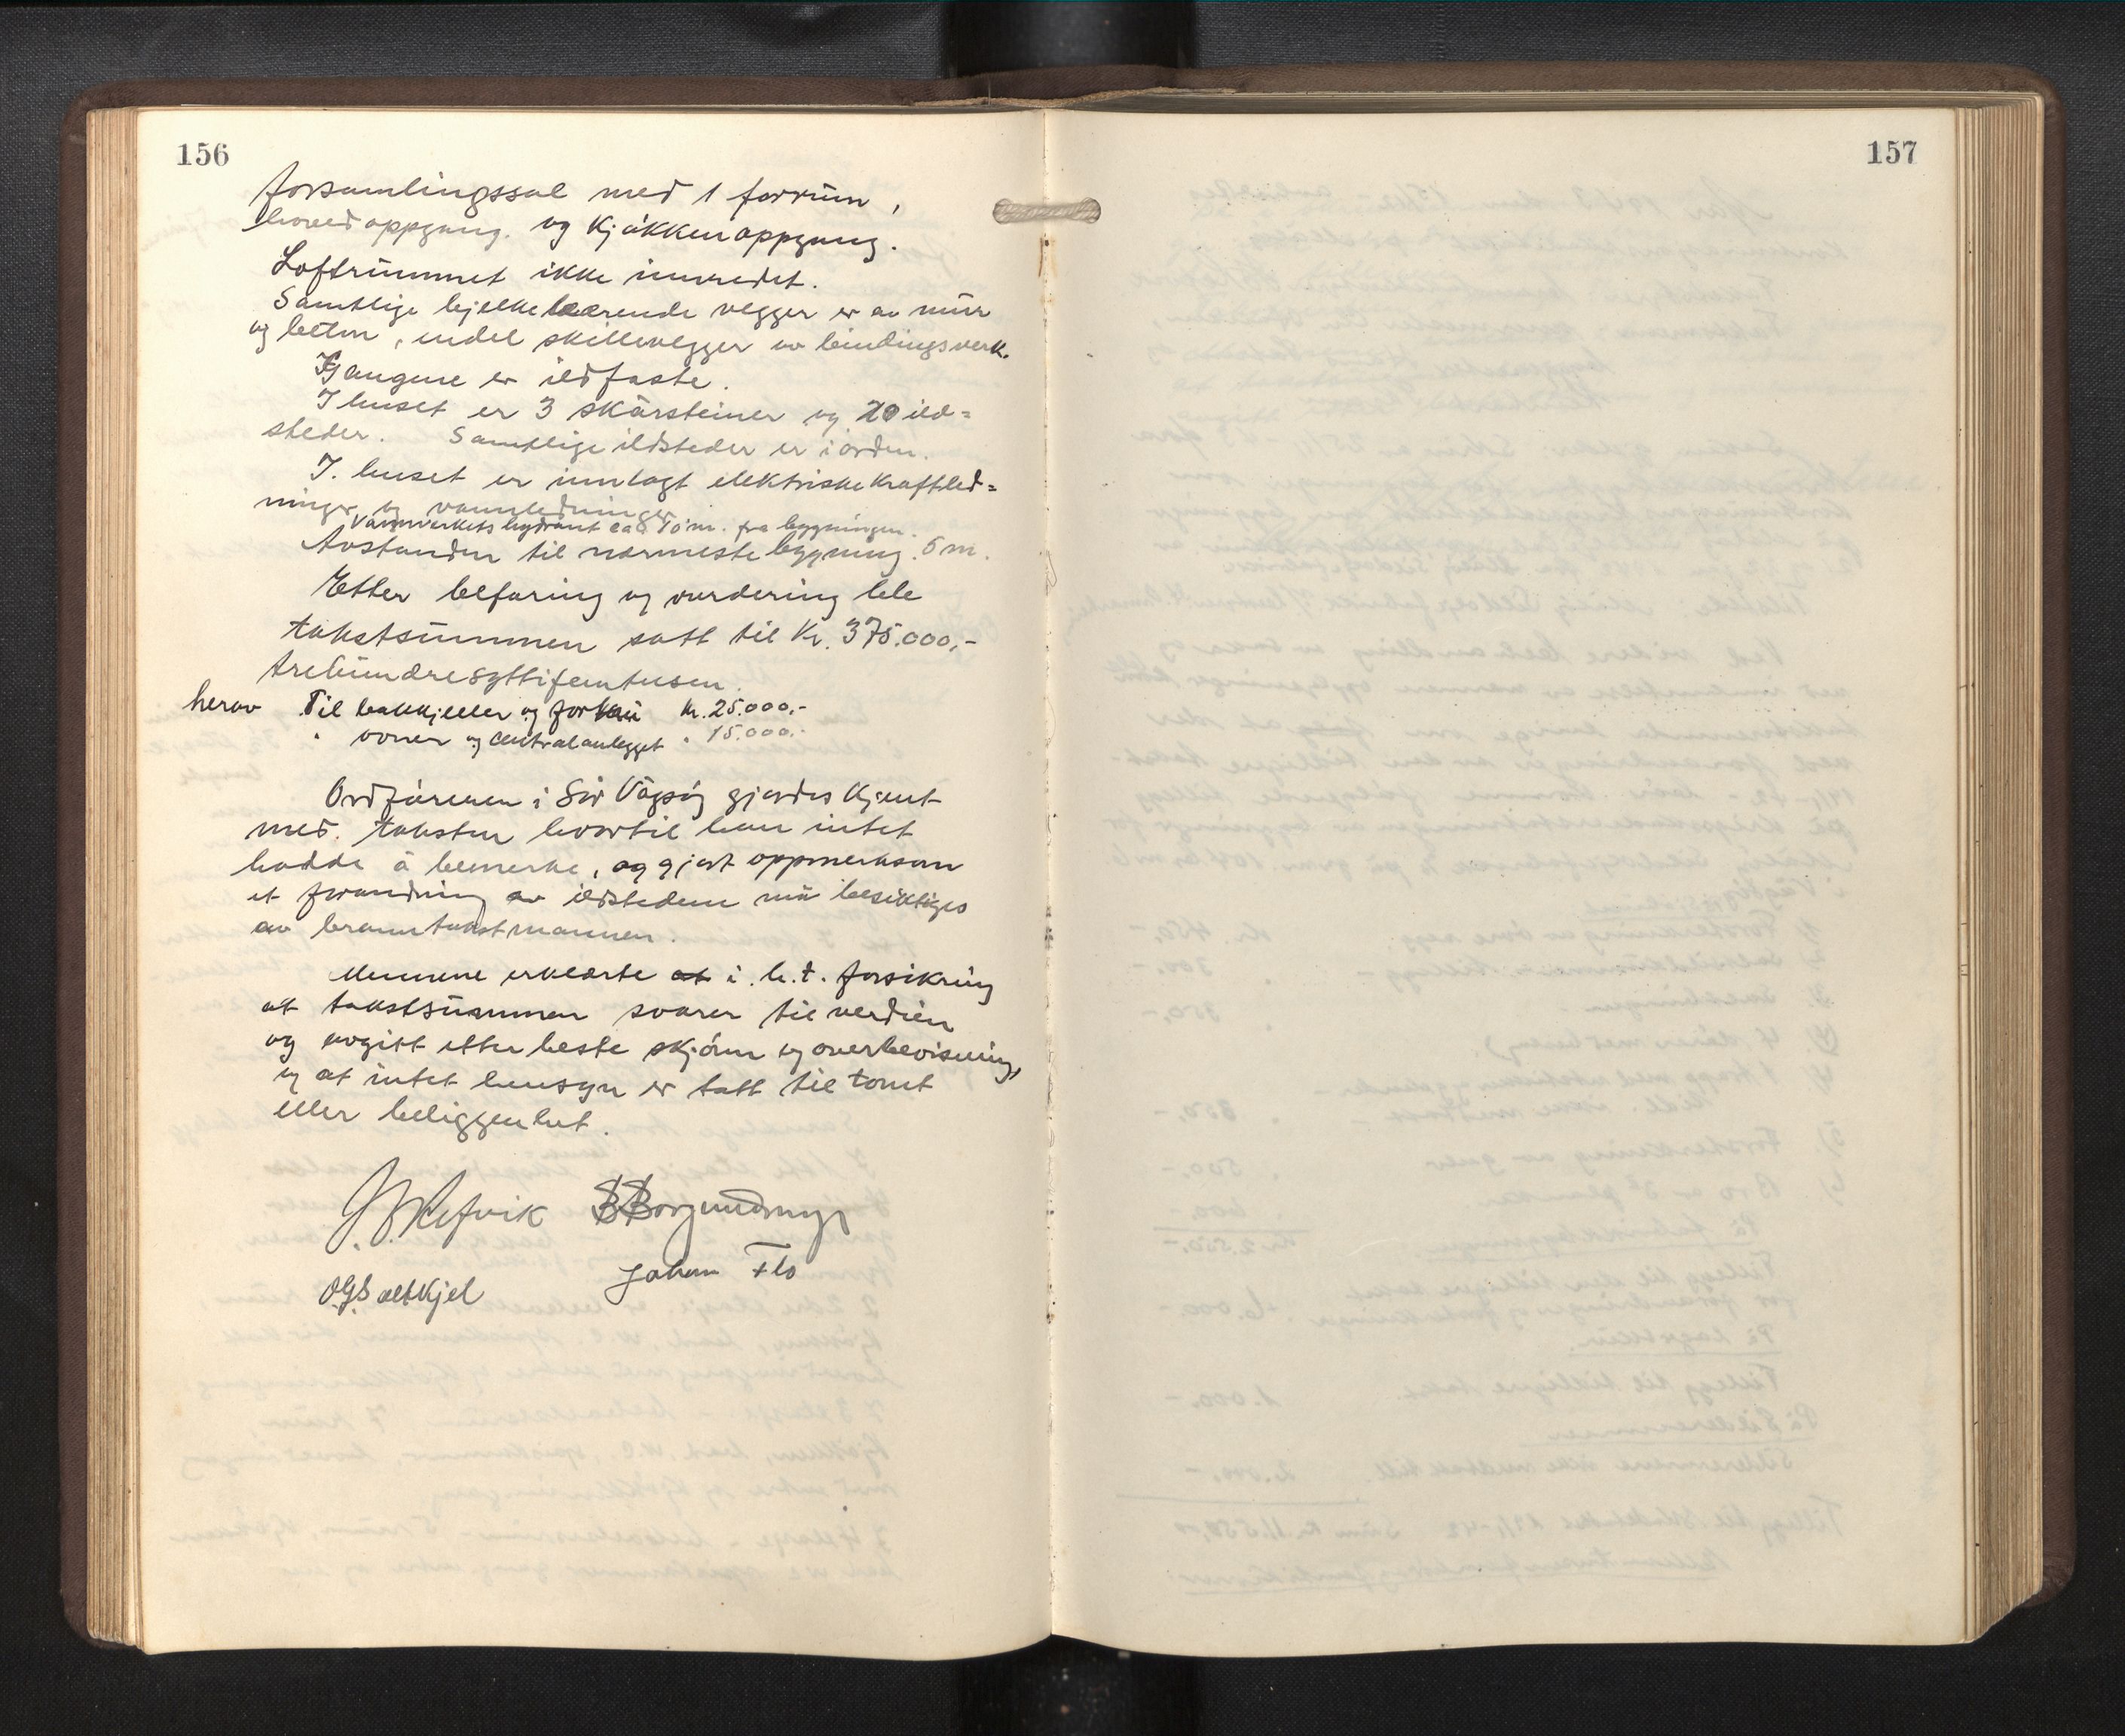 156
forsamlingssal med 1 forrum,
hovedoppgang. og Kjøkkenoppgang.
Loftrummet ikke innredet.
Samtlige bjelkebærende vegger er av mur
og beton, endel skillevegger av bindingsverk.
Gangene er ildfaste.
I huset er 3 skårsteiner og 20 ild=
steder. Samtlige ildsteder er i orden.
I. huset er innlagt elektriske Kraftled=
ninger og vannledninger
Vannverkets hydrant ca 10 m. fra bygningen.
Avstanden til nærmeste bygning. 5 m.
Etter befaring og vurdering ble
takstsummen satt til Kr. 375.000,-
trehundresyttifemtusen.
herav Til bakkjeller og Kr. 25.000.-
" ovner og centralanlegget " 15.000.-
Ordføreren i Sør Vågsøy gjordes Kjent
med. taksten hvortil han intet
hadde å bemerke, og gjort oppmerksom
at forandring av ildstedene må besiktiges
av branntakstmannen.
Mennene erklærte at i. h. t. forsikring
at takstsummen svarer til verdien
og avgitt etter beste skjønn og overbevisning,
og at intet hensyn er tatt til tomt
eller beliggenhet.
Refvik Borgundnup
Johan Flo
O.G.Sætkjel
157